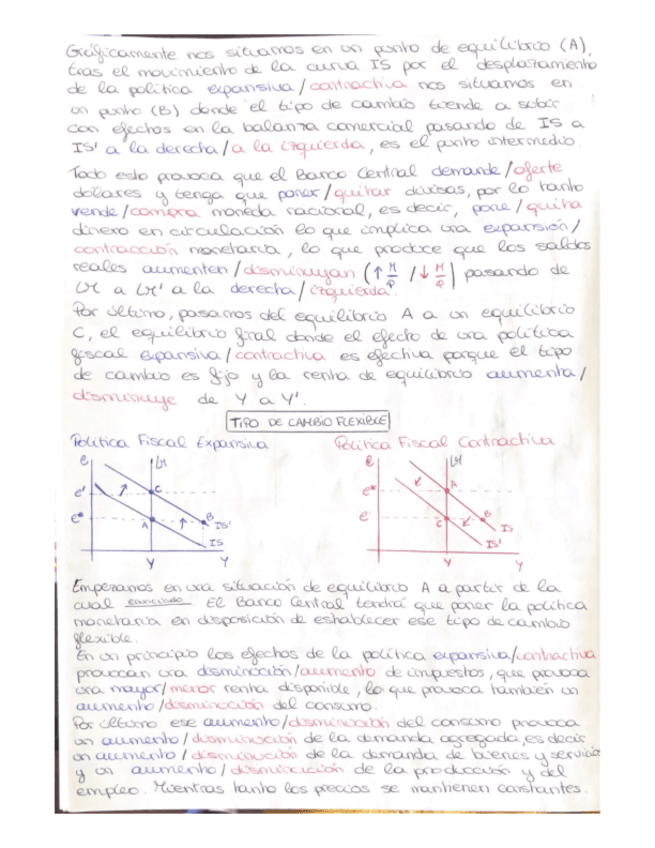 Gráficamente nos situamos en un punto de equilibrio (A),
tras el movimiento de la curva IS por el desplazamiento
de la política expansiva/contractiva nos situamos en
un punto (B) donde el tipo de cambio tiende a subir
con efectos en la balanza comercial pasando de IS a
IS' a la derecha/a la izquierda, es el punto intermedio.
Todo esto provoca que el Banco Central demande/oferte
dólares y tenga que poner/quitar divisas, por lo tanto
vende/compra moneda nacional, es decir, pone/quita
dinero en circulación lo que implica una expansión/
contracción monetaria, lo que produce que los saldos
reales aumenten/disminuyan (↑ M/P /↓ M/P) pasando de
LM a LM' a la derecha/izquierda.
Por último, pasamos del equilibrio A a un equilibrio
C, el equilibrio final donde el efecto de una política
fiscal expansiva/contractiva es efectiva porque el tipo
de cambio es fijo y la renta de equilibrio aumenta/
disminuye de Y a Y'.
TIPO DE CAMBIO FLEXIBLE
Política Fiscal Expansiva
Política Fiscal Contractiva
e LM
e' C
e* A B
IS'
IS
Y Y
e LM
e* A
e C B
IS
IS'
Y Y
Empezamos en una situación de equilibrio A a partir de la
cual enunciado El Banco Central tendrá que poner la política
monetaria en disposición de establecer ese tipo de cambio
flexible.
En un principio los efectos de la política expansiva/contractiva
provocan una disminución/aumento de impuestos, que provoca
una mayor/menor renta disponible, lo que provoca también un
aumento/disminución del consumo.
Por último ese aumento/disminución del consumo provoca
un aumento/disminución de la demanda agregada, es decir
un aumento/disminución de la demanda de bienes y servicios
y un aumento/disminución de la producción y del
empleo. Mientras tanto los precios se mantienen constantes.